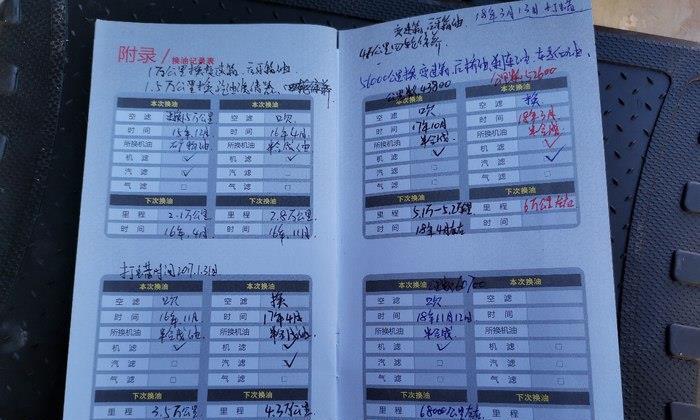 附录/换油记录表
1万公里换变速箱、后牙箱油
本次换油
本次换油
空滤
空滤 吹
时间 15年12月
时间 16年4月
所换机油 矿物油
所换机油 半合成油
机滤 ✓
机滤 ✓
汽滤 □
汽滤 □
气滤 □
气滤 □
下次换油
下次换油
里程 2.1万公里
里程 2.8万公里
时间 16年4月
时间 16年11月
本次换油
本次换油
空滤 吹
空滤 换
时间 16年11月
时间 17年4月
所换机油 半合成油
所换机油 半合成油
机滤 ✓
机滤 ✓
汽滤 □
汽滤 ✓
气滤 □
气滤 □
下次换油
下次换油
里程 3.5万公里
里程 4.3万公里
变速箱、后牙箱油
18年3月13日
公里数43300
公里数52600
本次换油
本次换油
空滤 吹
空滤 换
时间 17年10月
时间 18年3月
所换机油 半合成
所换机油 半合成
机滤 ✓
机滤 ✓
汽滤 □
汽滤 ✓
气滤 □
气滤 □
下次换油
下次换油
里程 5.1万-5.2万公里
里程 6万公里左右
时间 18年4月左右
时间
60700
本次换油
本次换油
空滤 吹
空滤
时间 18年11月12日
时间
所换机油 半合成
所换机油
机滤 ✓
机滤 □
汽滤 □
汽滤 □
气滤 □
气滤 □
下次换油
下次换油
里程 68000公里左右
里程